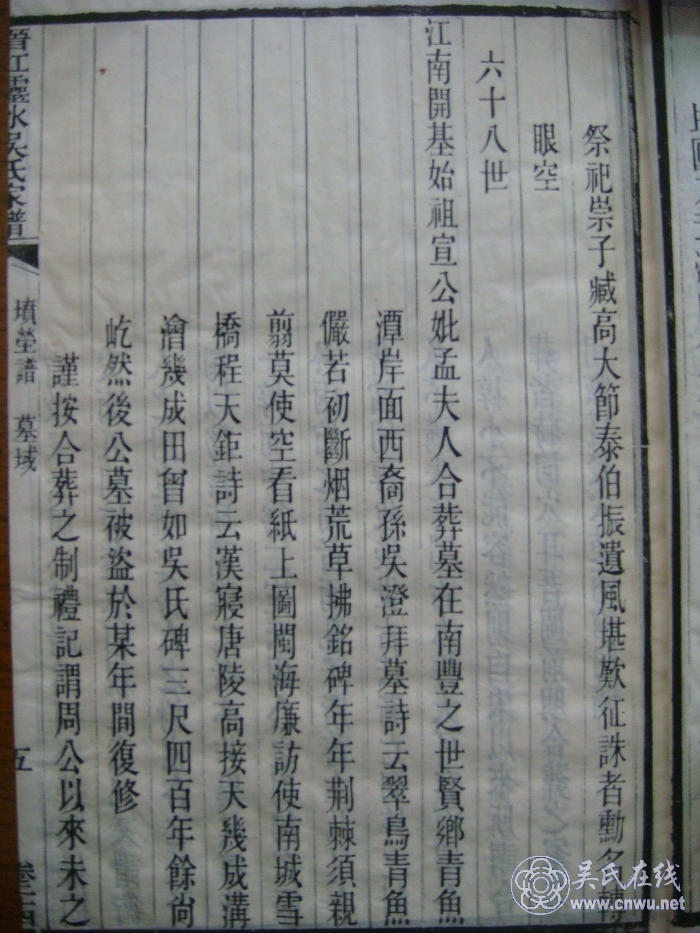 祭祀崇子臧高大節泰伯振遺風堪歎征誅者勳名
眼空
六十八世
江南開基始祖宣公妣孟夫人合葬墓在南豐之世賢鄉青魚
潭岸面西裔孫吳澄拜墓詩云翠鳥青魚
儼若初斷烟荒草拂銘碑年年荆棘須親
翦莫使空看紙上圖閩海廉訪使南城雪
橋程天鉅詩云漢寢唐陵高接天幾成溝
澮幾成田曾如吳氏碑三尺四百年餘尙
屹然後公墓被盜於某年間復修
謹按合葬之制禮記謂周公以來未之
晋江靈水吳氏家譜
墳塋譜 墓域
五
吴氏在线
www.cnwu.net